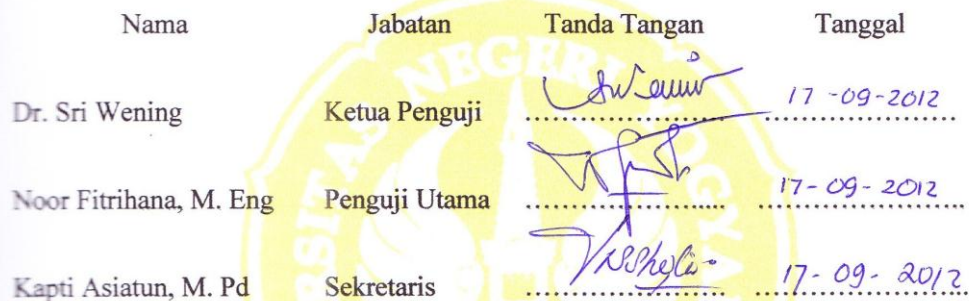 Nama Jabatan Tanda Tangan Tanggal
Dr. Sri Wening Ketua Penguji .................... 17-09-2012
Noor Fitrihana, M. Eng Penguji Utama .................... 17-09-2012
Kapti Asiatun, M. Pd Sekretaris .................... 17-09-2012